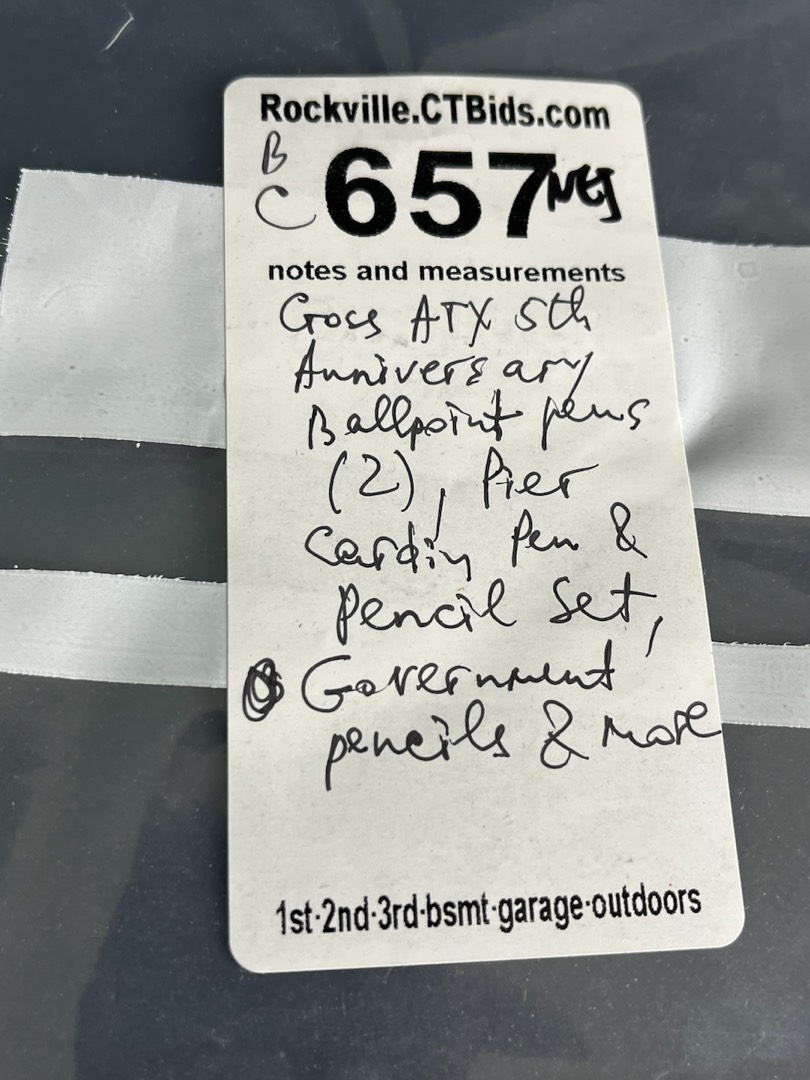 Rockville.CTBids.com
B
C 657
notes and measurements
Cross ATX 5th
Anniversary
Ballpoint pens
(2), Pier
Cardin Pen &
Pencil Set,
Government
pencils & more
1st·2nd·3rd·bsmt·garage·outdoors